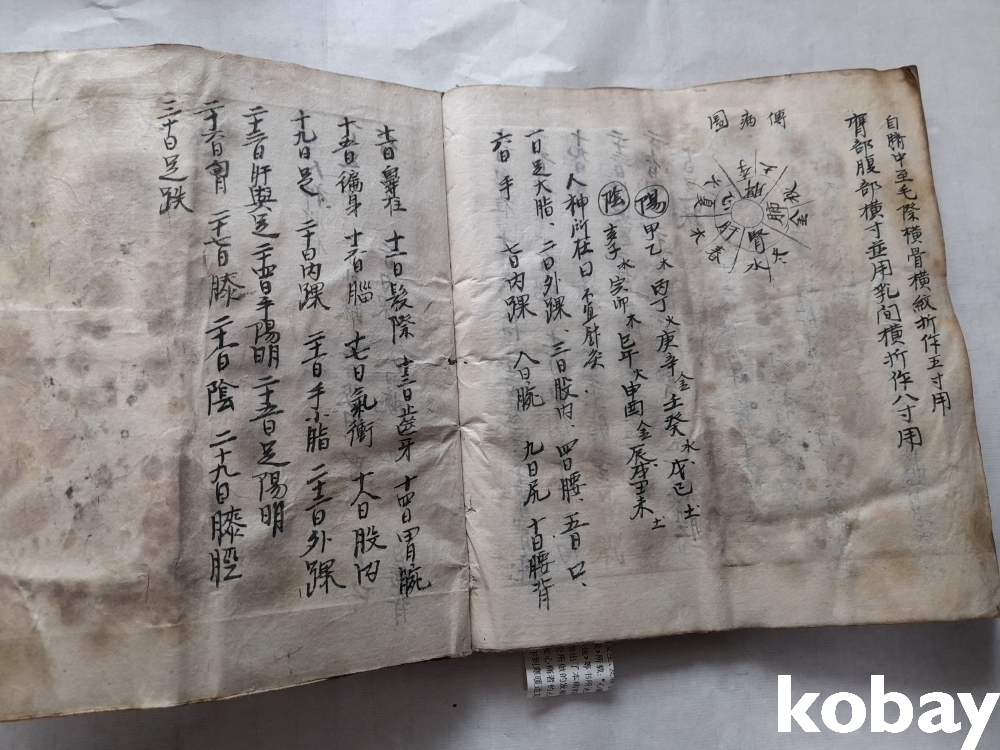 自臍中至毛際橫骨橫紋折作五寸用
胷部腹部橫寸並用乳間橫折作八寸用
傳病圖
肺
金
腎
水
火
木
陽 甲乙木 丙丁火 庚辛金 壬癸水 戊己土
陰 亥子水 寅卯木 巳午火 申酉金 辰戌丑未土
人神所在日 不宜針灸
一日足大脂、二日外踝、三日股內、四日腰 五日口、
六日手 七日內踝 八日腕 九日尻 十日腰背
十一日鼻柱 十二日髮際 十三日齒牙 十四日胃腕
十五日徧身 十六日腦 十七日氣衝 十八日股內
十九日足 二十日內踝 二十一日手小脂 二十二日外踝
二十三日肝與足 二十四日手陽明 二十五日足陽明
二十六日胷 二十七日膝 二十八日陰 二十九日膝脛
三十日足趺
kobay